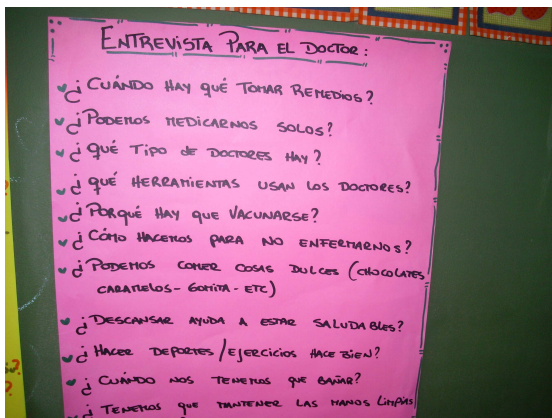 ENTREVISTA PARA EL DOCTOR:
¿CUÁNDO HAY QUÉ TOMAR REMEDIOS?
¿PODEMOS MEDICARNOS SOLOS?
¿QUÉ TIPO de DOCTORES HAY?
¿QUÉ HERRAMIENTAS USAN LOS DOCTORES?
¿PORQUÉ HAY QUE VACUNARSE?
¿CÓMO HACEMOS PARA NO ENFERMARNOS?
¿PODEMOS COMER COSAS DULCES (CHOCOLATES
CARAMELOS - GOMITA - ETC)
¿DESCANSAR AYUDA A ESTAR SALUDABLES?
¿HACER DEPORTES/EJERCICIOS HACE BIEN?
¿CUÁNDO NOS TENEMOS QUE BAÑAR?
¿TENEMOS QUE MANTENER LAS MANOS LIMPIAS